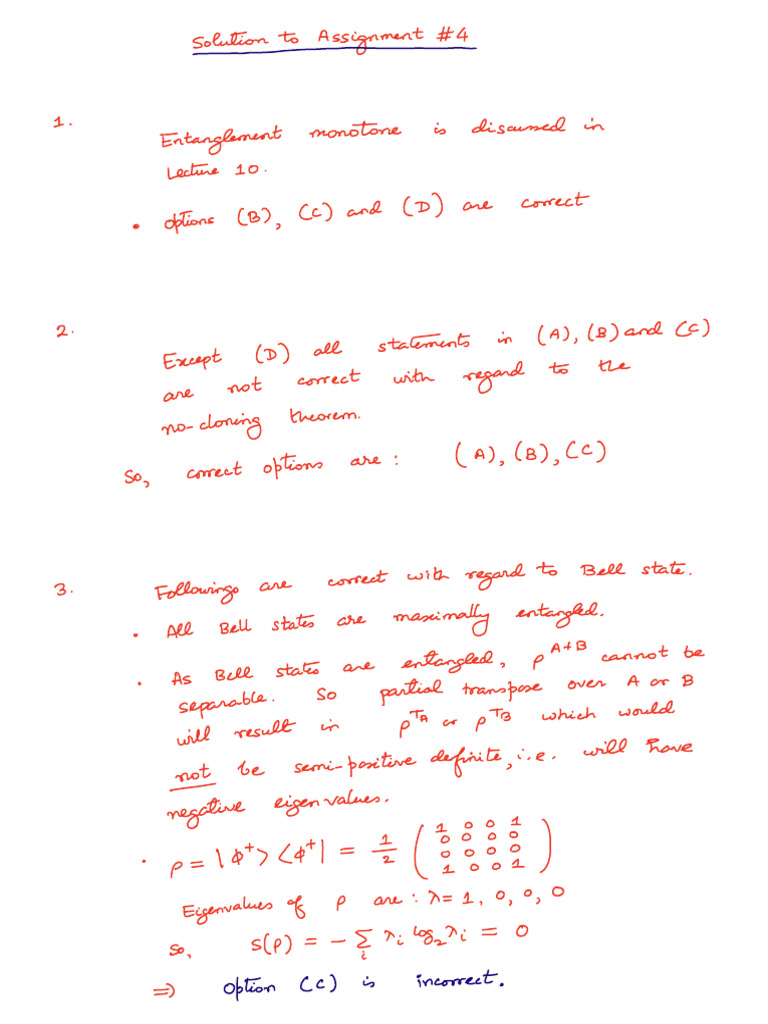 Solution to Assignment #4
1.
Entanglement monotone is discussed in
Lecture 10.
• Options (B), (C) and (D) are correct
2.
Except (D) all statements in (A), (B) and (C)
are not correct with regard to the
no-cloning theorem.
So, correct options are : (A), (B), (C)
3.
Followings are correct with regard to Bell state.
• All Bell states are maximally entangled.
• As Bell states are entangled, ρ^{A+B} cannot be
separable. So partial transpose over A or B
will result in ρ^{T_A} or ρ^{T_B} which would
not be semi-positive definite, i.e. will have
negative eigenvalues.
• ρ = |ϕ⁺> <ϕ⁺| = 1/2 ( 1 0 0 1
0 0 0 0
0 0 0 0
1 0 0 1 )
Eigenvalues of ρ are : λ = 1, 0, 0, 0
So, S(ρ) = - Σ_i λ_i log_2 λ_i = 0
⇒ Option (C) is incorrect.